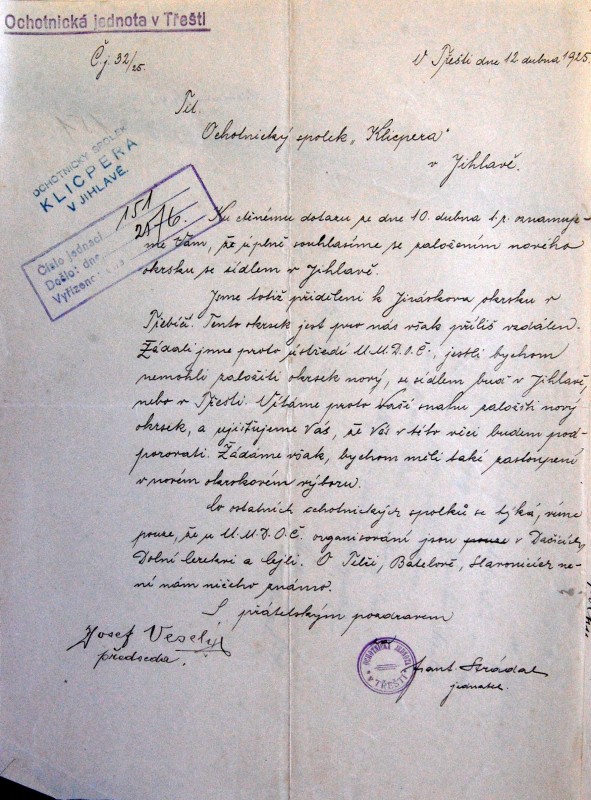 Ochotnická jednota v Třešti
Č.j. 32/25.
V Třešti dne 12 dubna 1925.
Tit.
Ochotnický spolek „Klicpera"
v Jihlavě.
OCHOTNICKÝ SPOLEK
KLICPERA
V JIHLAVĚ.
Číslo jednací 151
Došlo: dne
Vyřízeno:
Ku ctěnému dotazu ze dne 10. dubna t.r. oznamuje-
me Vám, že úplně souhlasíme se založením nového
okrsku se sídlem v Jihlavě.
Jsme totiž přiděleni k Jiráskovu okrsku v
Třebíči. Tento okrsek jest pro nás však příliš vzdálen.
Žádali jsme proto ústředí Ú.M.D.O.Č., jestli bychom
nemohli založiti okrsek nový, se sídlem buď v Jihlavě,
nebo v Třešti. Vítáme proto Vaší snahu založiti nový
okrsek, a ujišťujeme Vás, že Vás v této věci budem pod-
porovati. Žádáme však, bychom měli také zastoupení
v novém okrskovém výboru.
Co ostatních ochotnických spolků se týká, víme
pouze, že u Ú.M.D.O.Č. organisováni jsou pouze v Dačicích,
Dolní Cerekvi a Cejli. O Telči, Batelově, Slavonicích ne-
ní nám ničeho známo.
S přátelským pozdravem
Josef Veselý
předseda.
OCHOTNICKÁ JEDNOTA
V TŘEŠTI
Frant. Strádal
jednatel.